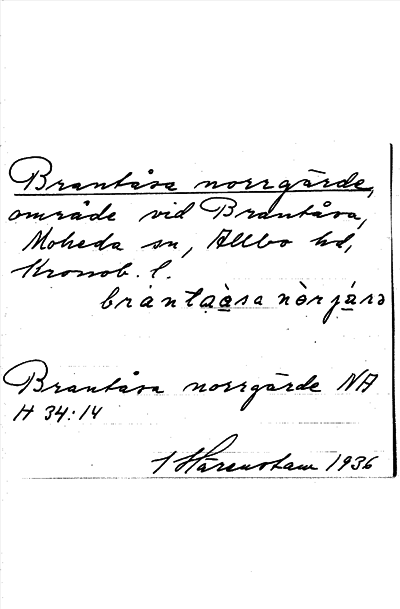 Brantåsa norrgärde,
område vid Brantåsa,
Moheda sn, Allbo hd,
Kronob. l.
bràntaàsa nòrjá̱rə
Brantåsa norrgärde NA
H 34:14
I Härenstam 1936